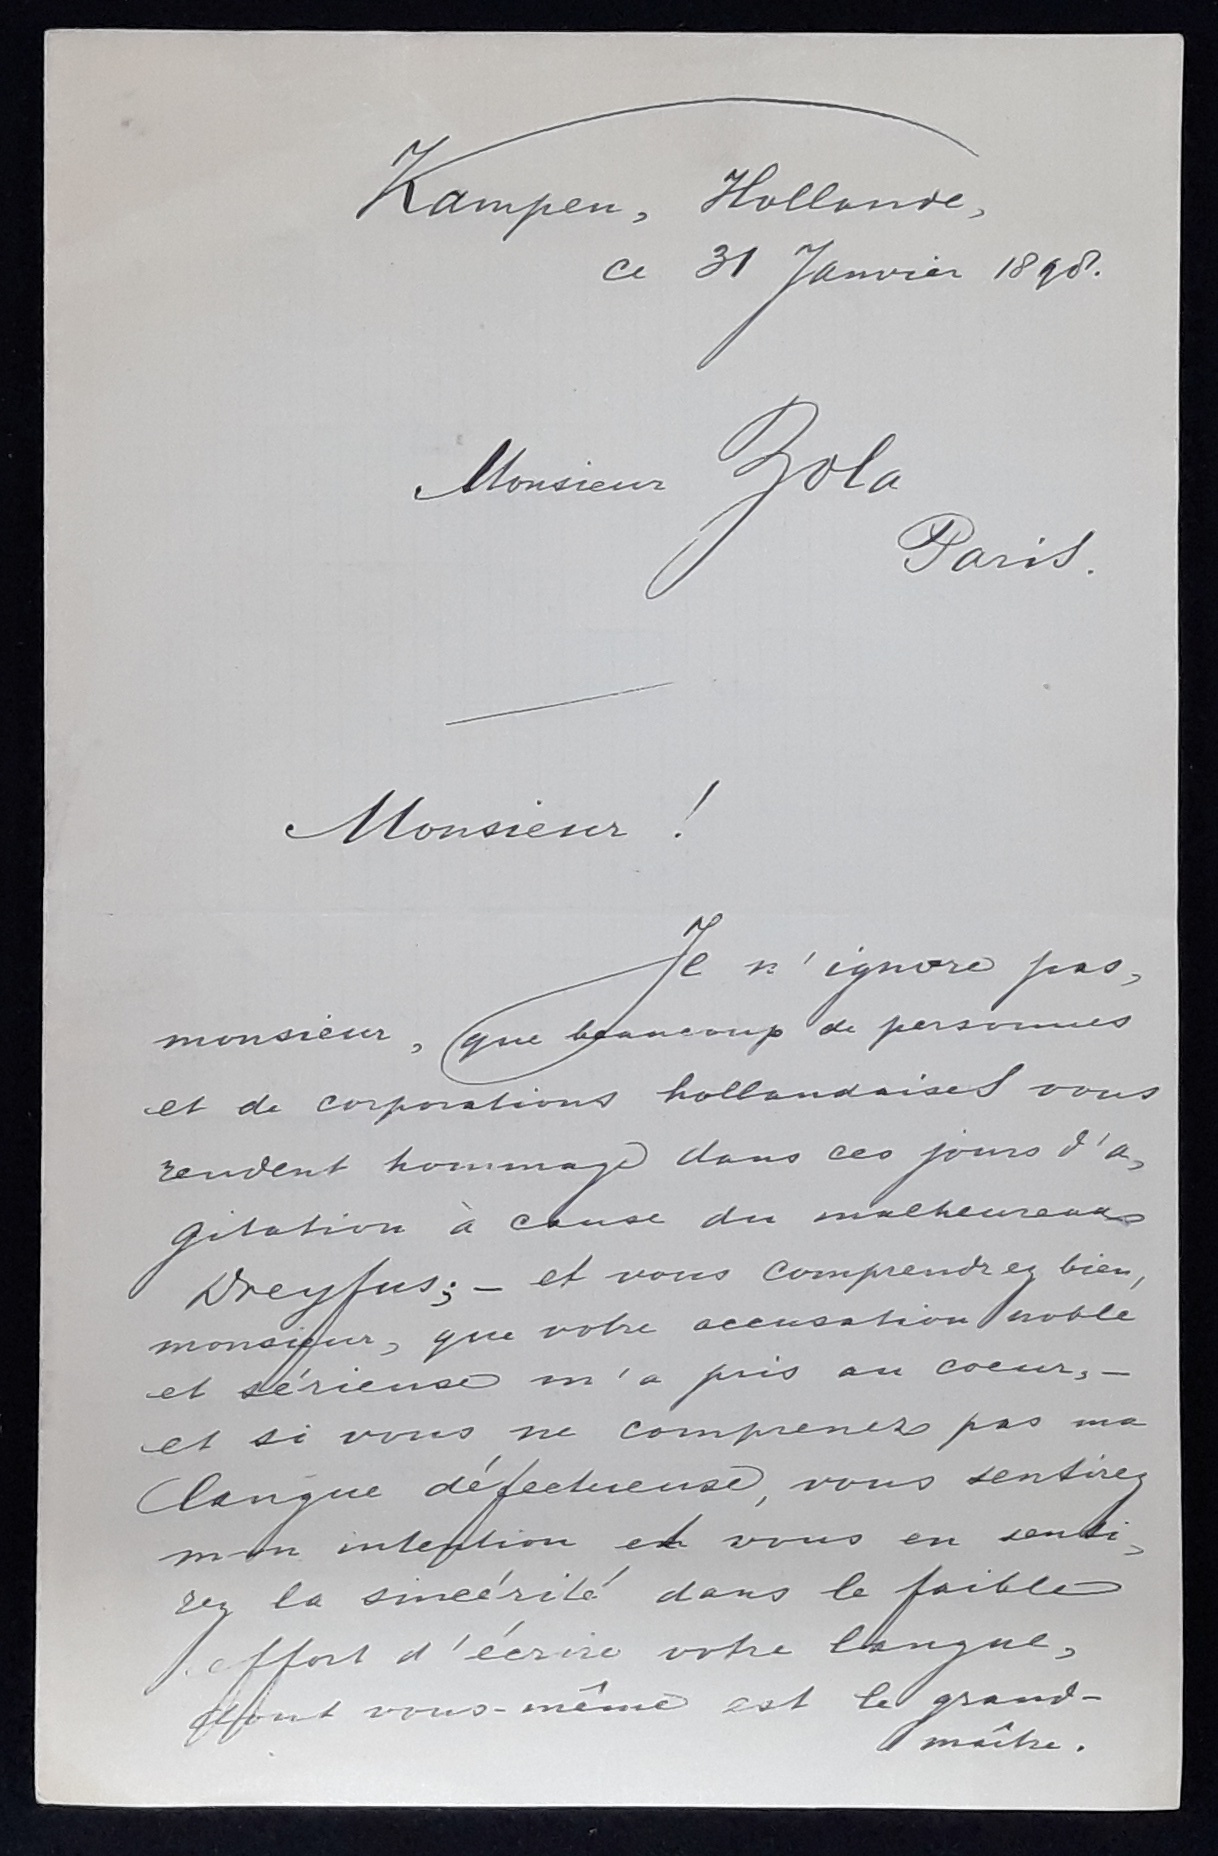 Kampen, Hollande,
ce 31 Janvier 1898.
Monsieur Zola
Paris.
Monsieur !
Je n'ignore pas,
monsieur, que beaucoup de personnes
et de corporations hollandaises vous
rendent hommage dans ces jours d'a,
gitation à cause du malheureux
Dreyfus; – et vous comprendrez bien,
monsieur, que votre accusation noble
et sérieuse m'a pris au coeur, –
et si vous ne comprenez pas ma
langue défectueuse, vous sentirez
mon intention et vous en senti,
rez la sincérité dans le faible
effort d'écrire votre langue,
dont vous-même est le grand-
maître.